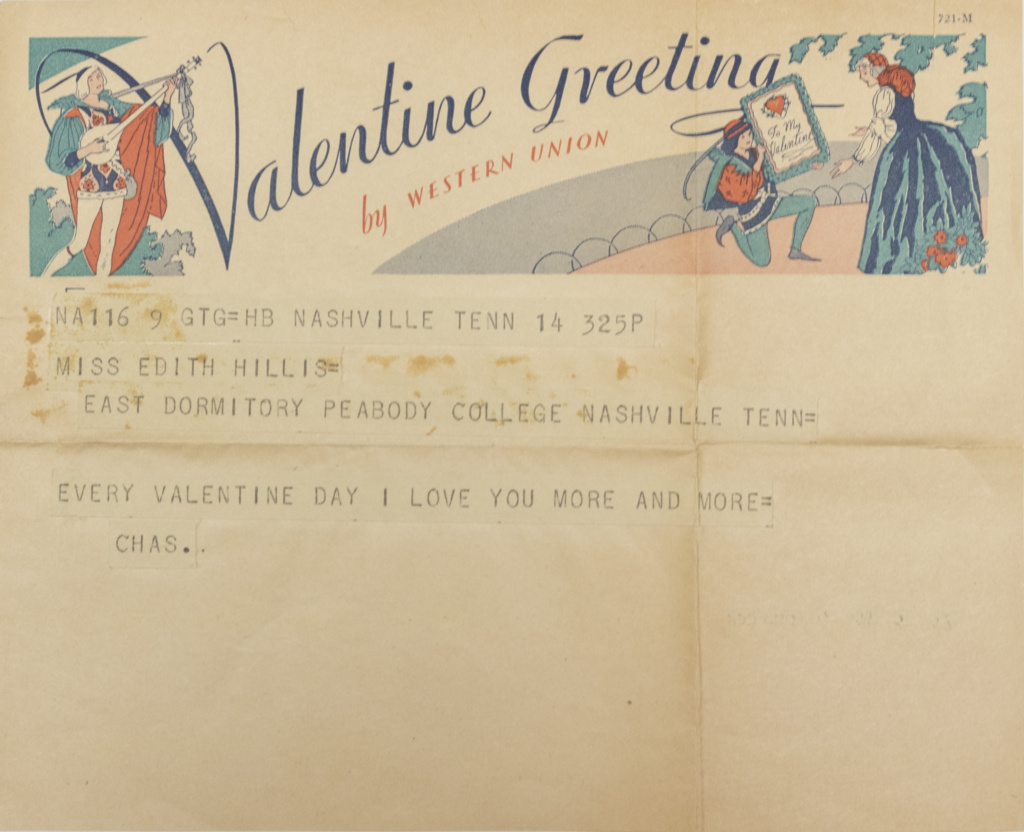 721-M
Valentine Greeting
by WESTERN UNION
To My
Valentine
NA116 9 GTG=HB NASHVILLE TENN 14 325P
MISS EDITH HILLIS=
EAST DORMITORY PEABODY COLLEGE NASHVILLE TENN=
EVERY VALENTINE DAY I LOVE YOU MORE AND MORE=
CHAS..